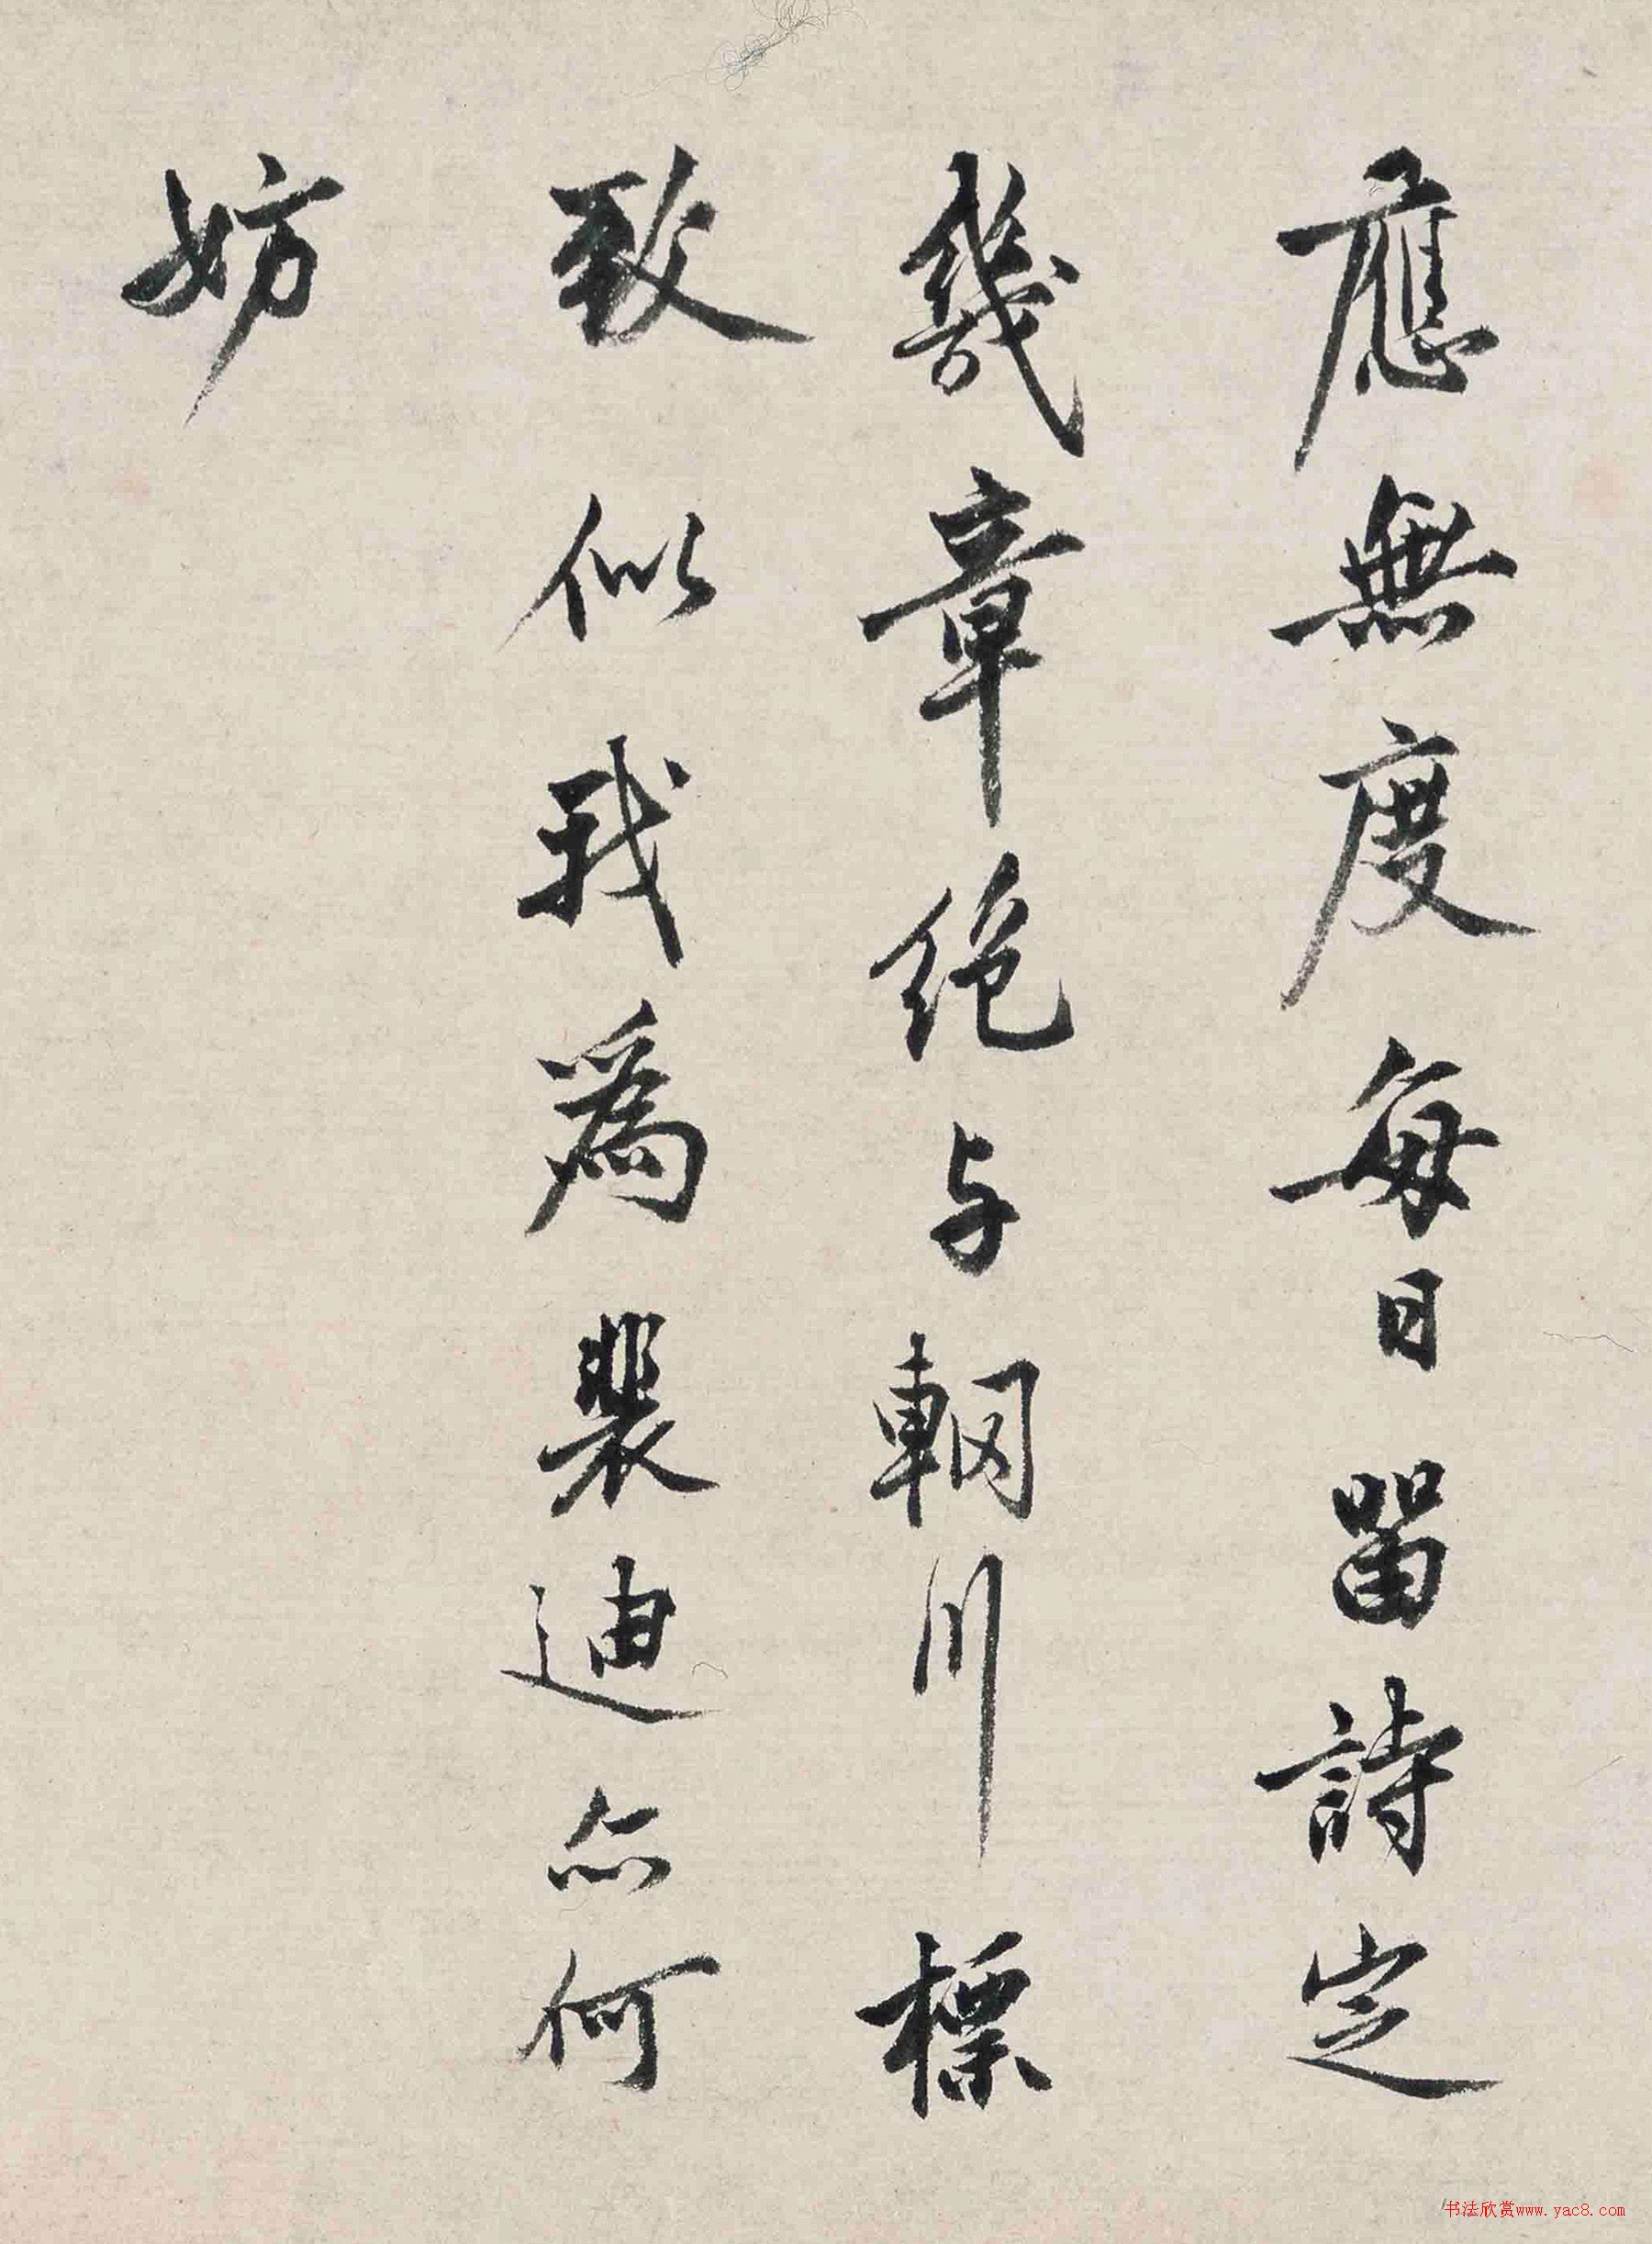 應無度每日留詩定
幾章絕与輞川標
致似我為裴迪亦何
妨
书法欣赏www.yac8.com